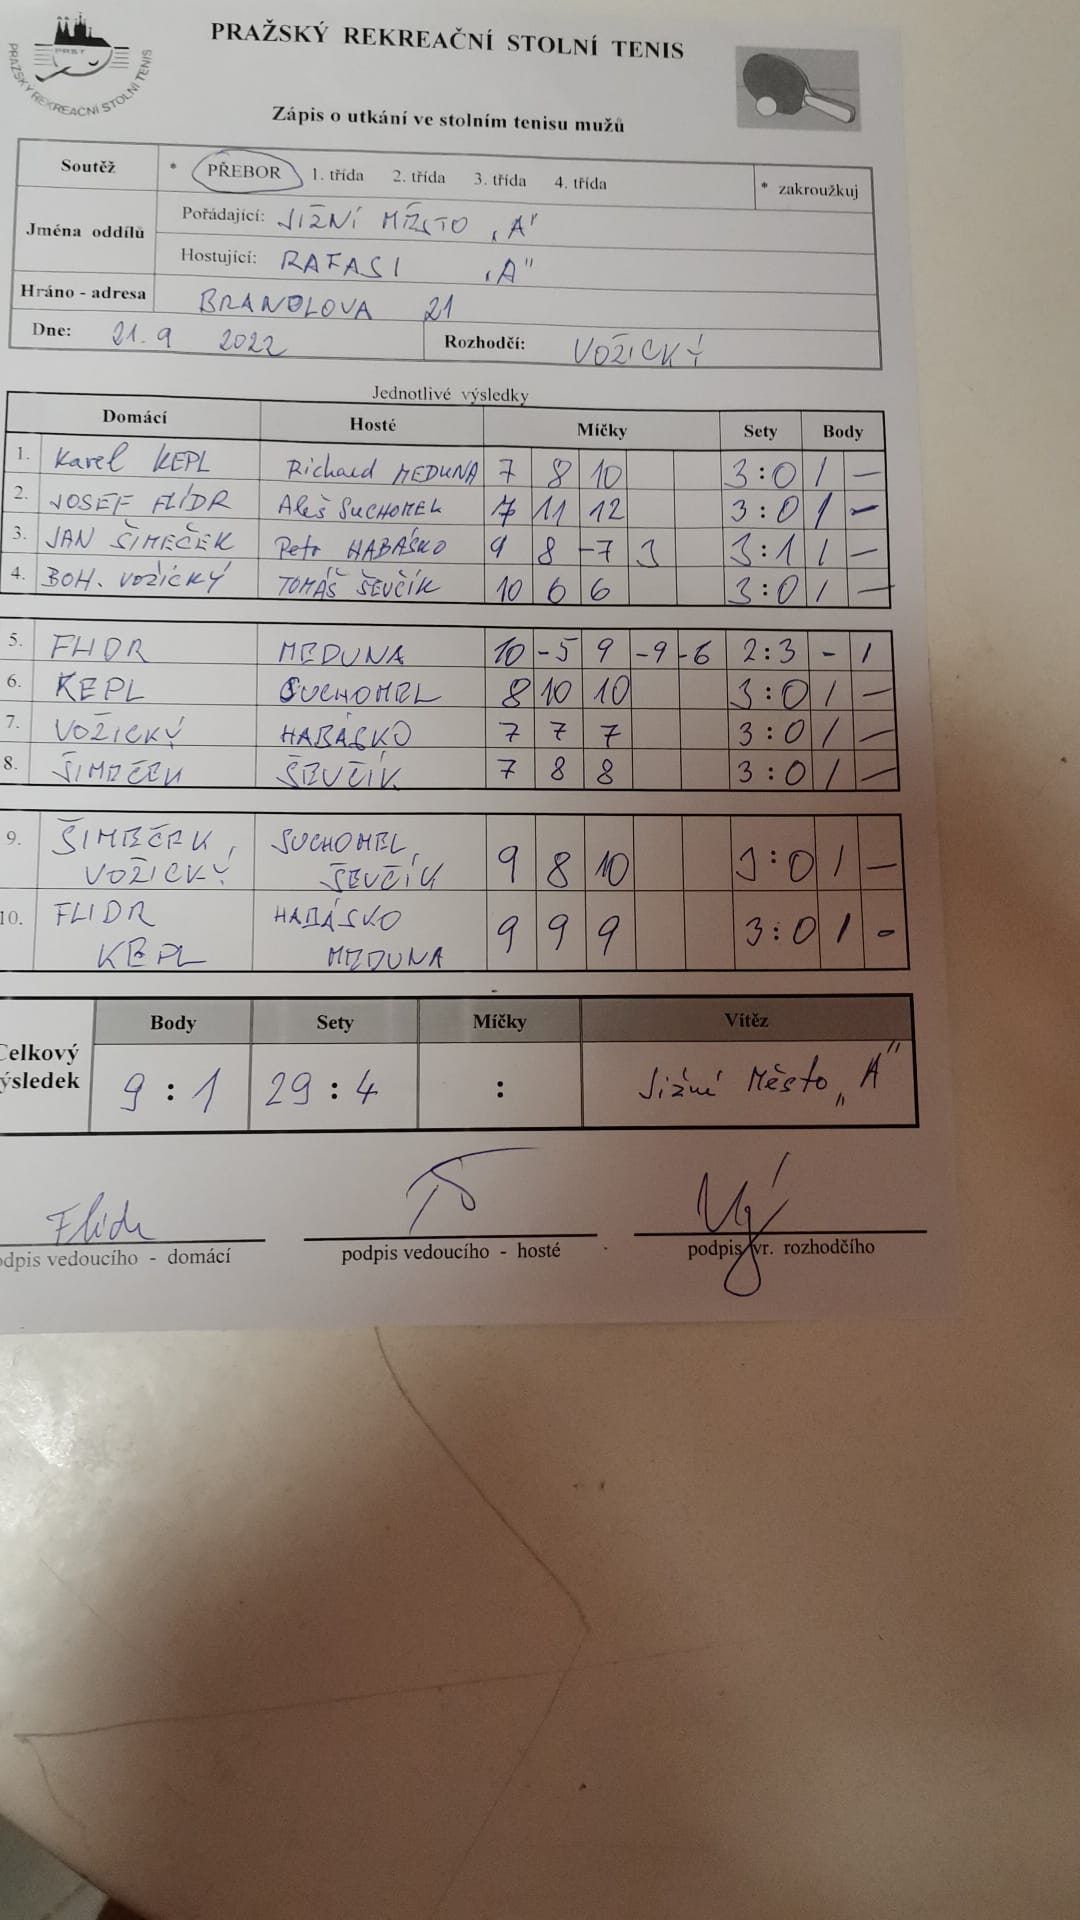 PRAŽSKÝ REKREAČNÍ STOLNÍ TENIS
PRST
PRAŽSKÝ REKREAČNÍ STOLNÍ TENIS
Zápis o utkání ve stolním tenisu mužů
Soutěž * PŘEBOR 1. třída 2. třída 3. třída 4. třída * zakroužkuj
Jména oddílů
Pořádající: JIŽNÍ MĚSTO „A"
Hostující: RAFASI „A"
Hráno - adresa BRANDLOVA 21
Dne: 21. 9 2022 Rozhodčí: VOŽICKÝ
Jednotlivé výsledky
Domácí Hosté Míčky Sety Body
1. Karel KEPL Richard MEDUNA 7 8 10 3:0 1 –
2. JOSEF FLÍDR Aleš SUCHOMEL 7 11 12 3:0 1 –
3. JAN ŠIMEČEK Petr HABÁSKO 9 8 -7 3 3:1 1 –
4. BOH. VOŽICKÝ TOMÁŠ ŠEVČÍK 10 6 6 3:0 1 –
5. FLIDR MEDUNA 10 -5 9 -9 -6 2:3 - 1
6. KEPL SUCHOMEL 8 10 10 3:0 1 –
7. VOŽICKÝ HABÁSKO 7 7 7 3:0 1 –
8. ŠIMEČEK ŠEVČÍK 7 8 8 3:0 1 –
9. ŠIMEČEK, SUCHOMEL,
VOŽICKÝ ŠEVČÍK 9 8 10 3:0 1 –
10. FLIDR HABÁSKO
KEPL MEDUNA 9 9 9 3:0 1 -
Body Sety Míčky Vítěz
Celkový
výsledek 9 : 1 29 : 4 : Jižní Město „A"
Flídr
podpis vedoucího - domácí podpis vedoucího - hosté podpis vr. rozhodčího